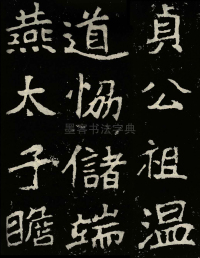 貞公祖温
道協儲端
燕太子瞻
墨害书法字典